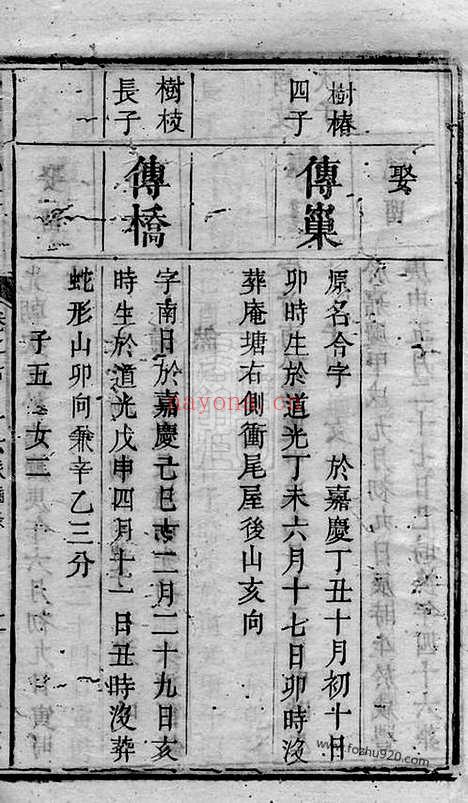 娶
樹椿
四子
傳巢
原名合字 於嘉慶丁丑十月初十日
卯時生於道光丁未六月十七日卯時沒
葬庵塘右側衝尾屋後山亥向
樹枝
長子
傳橋
字南日於嘉慶己巳十二月二十九日亥
時生於道光戊申四月十一日丑時沒葬
蛇形山卯向兼辛乙三分
子五 女二
nayona.cn
www.fozhu920.com